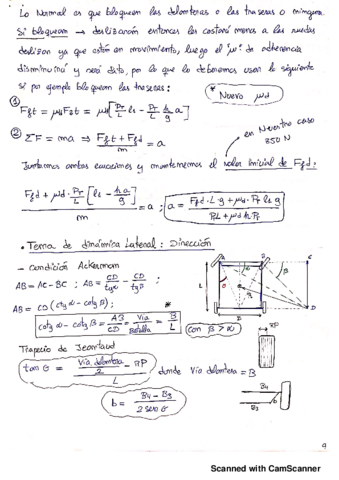 Lo Normal es que bloqueen las delanteras o las traseras o ninguna.
Si bloquean → deslización entonces les costará menos a las ruedas
deslizan ya que están en movimiento, luego el "μ" de adherencia
disminuirá y será dato, por lo que lo debemos usar lo siguiente
si por ejemplo bloquean las traseras:
* Nuevo μd
① Fft = μd Fzt = μd [PT/L ls - PT/L h/g a]
② ΣF = ma ⇒ (Fft + Ffd)/m = a
en Nuestro caso
350 N
Juntamos ambas ecuaciones y mantenemos el valor inicial de Ffd:
(Ffd + μd · PT/L [ls - ha/g])/m = a ; a = (Ffd · L · g + μd · PT ls g)/(PL + μd h PT)
• Tema de dinámica Lateral: Dirección
- Condición Ackerman
AB = AC - BC ; AB = CD/tgα - CD/tgβ
AB = CD (ctgα - cotgβ);
cotgα - cotgβ = AB/CD = Vía/Batalla = B/L
con β > α
Trapecio de Jeantaud
tan θ = (Vía delantera/2 - RP)/L donde Vía delantera = B
b = (B4 - B3)/(2 sen θ)
L
RP
B4
B3
b
9
Scanned with CamScanner